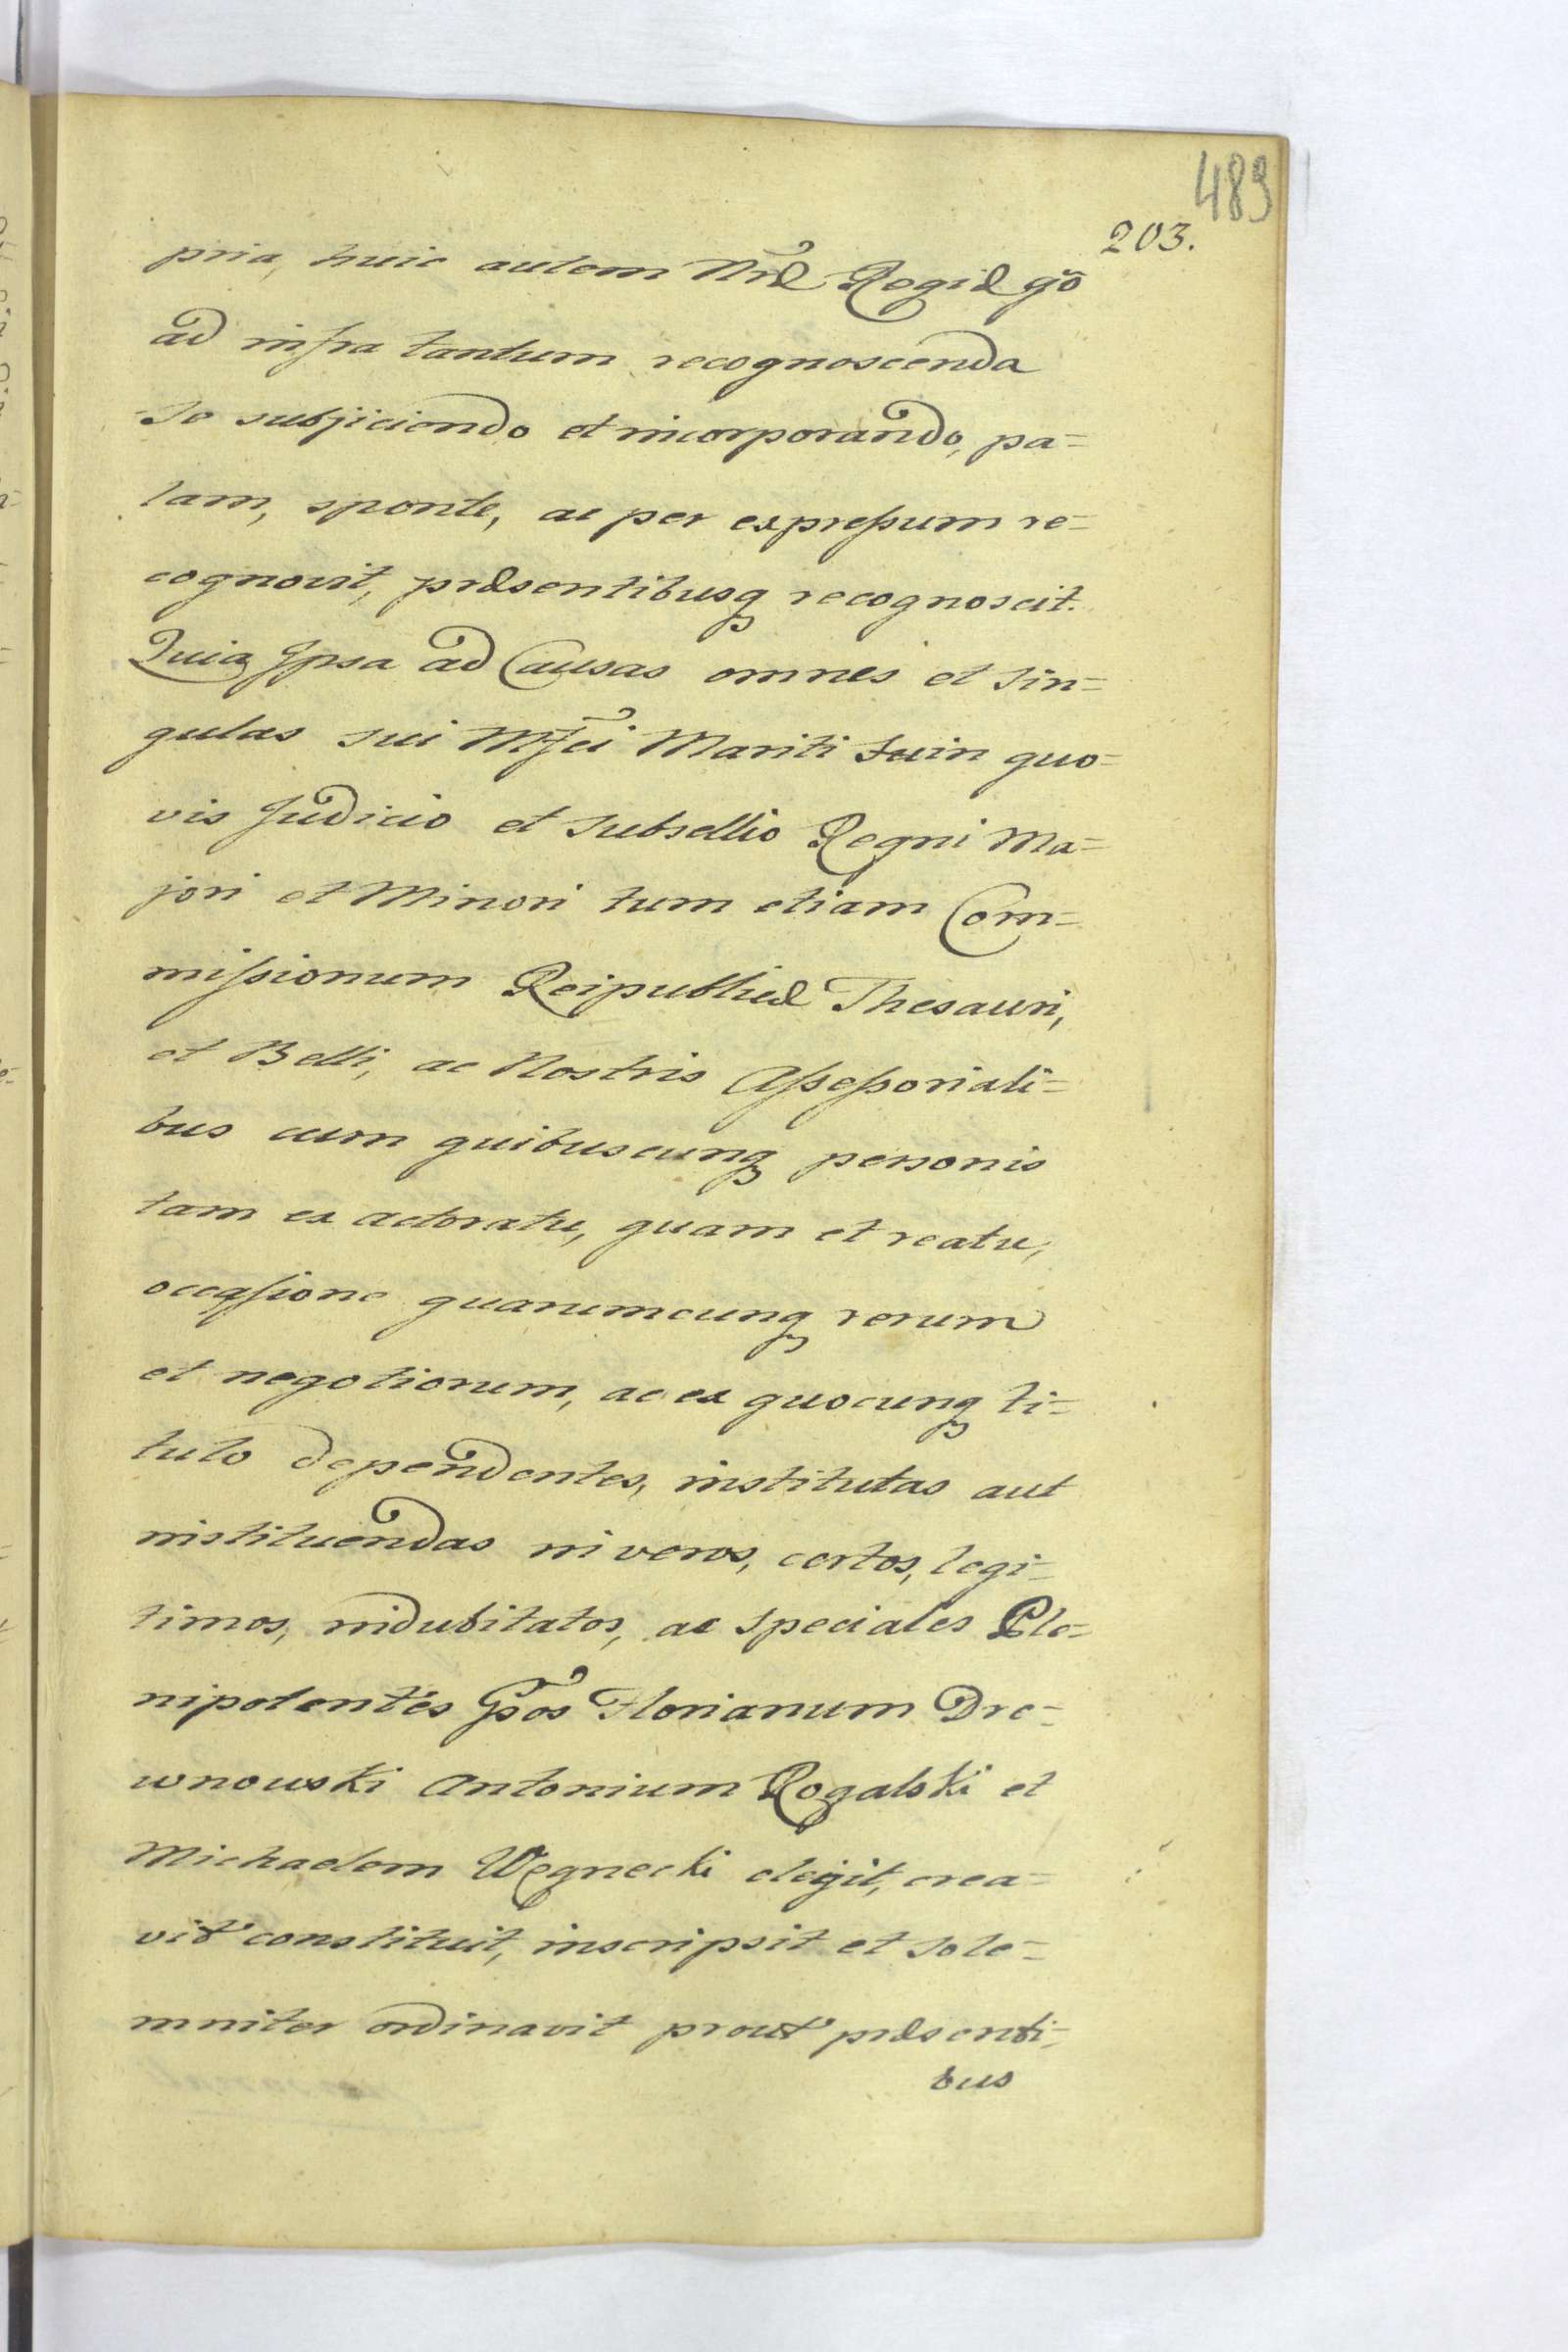 489
203.
pria, huic autem Nræ Regiæ gõ
ad infra tantum recognoscenda
se subjiciendo et incorporando, pa=
lam, sponte, ac per expreſsum re=
cognovit, præsentibusq recognoscit.
Quia Ipsa ad Causas omnes et sin=
gulas sui Mfci Mariti suin quo=
vis Judicio et subsellio Regni Ma=
jori et Minori tum etiam Com=
miſsionum Reipublicæ Thesauri,
et Belli, ac Nostris Aſseſsoriali=
bus cum quibuscunq personis
tam ex actoratu, quam et reatu,
occaſione quarumcunq rerum
et negotiorum, ac ex quocunq ti=
tulo dependentes, institutas aut
instituendas in veros, certos, legi=
timos, indubitatos, ac speciales Ple=
nipotentes Gsos Florianum Dre=
wnowski Antonium Rogalski et
Michaelem Węgnecki elegit, crea=
vit constituit, inscripsit et sole=
mniter ordinavit prout præsenti=
bus